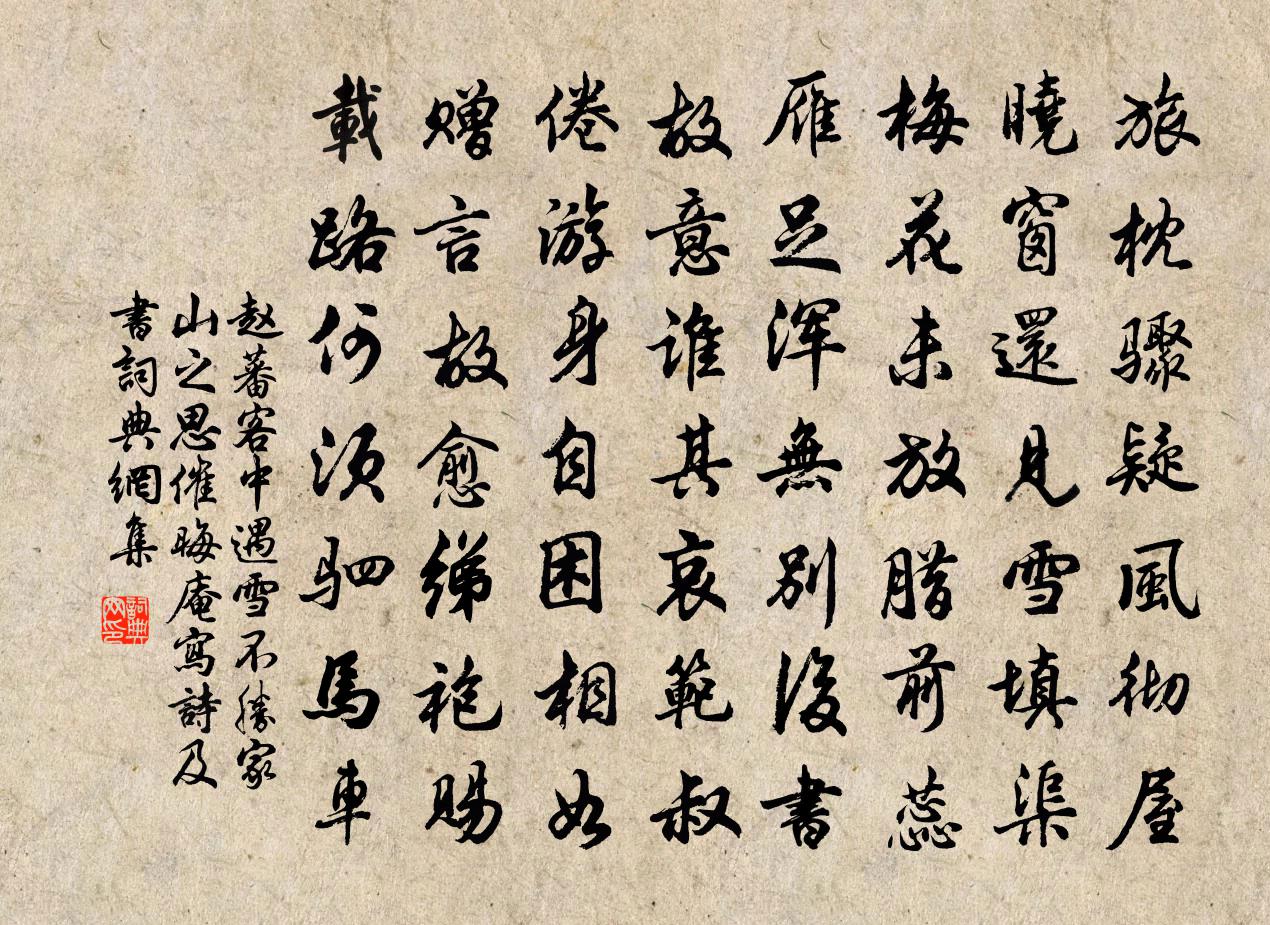 旅枕驟疑風彻屋
曉窗還見雪填渠
梅花未放腊前蕊
雁足浑無别後書
故意谁其哀範叔
倦游身自困相如
赠言故愈绨袍賜
載路何须驷馬車
赵蕃客中遇雪不勝家
山之思催晦庵寫詩及
書詞典網集
詞典
网印